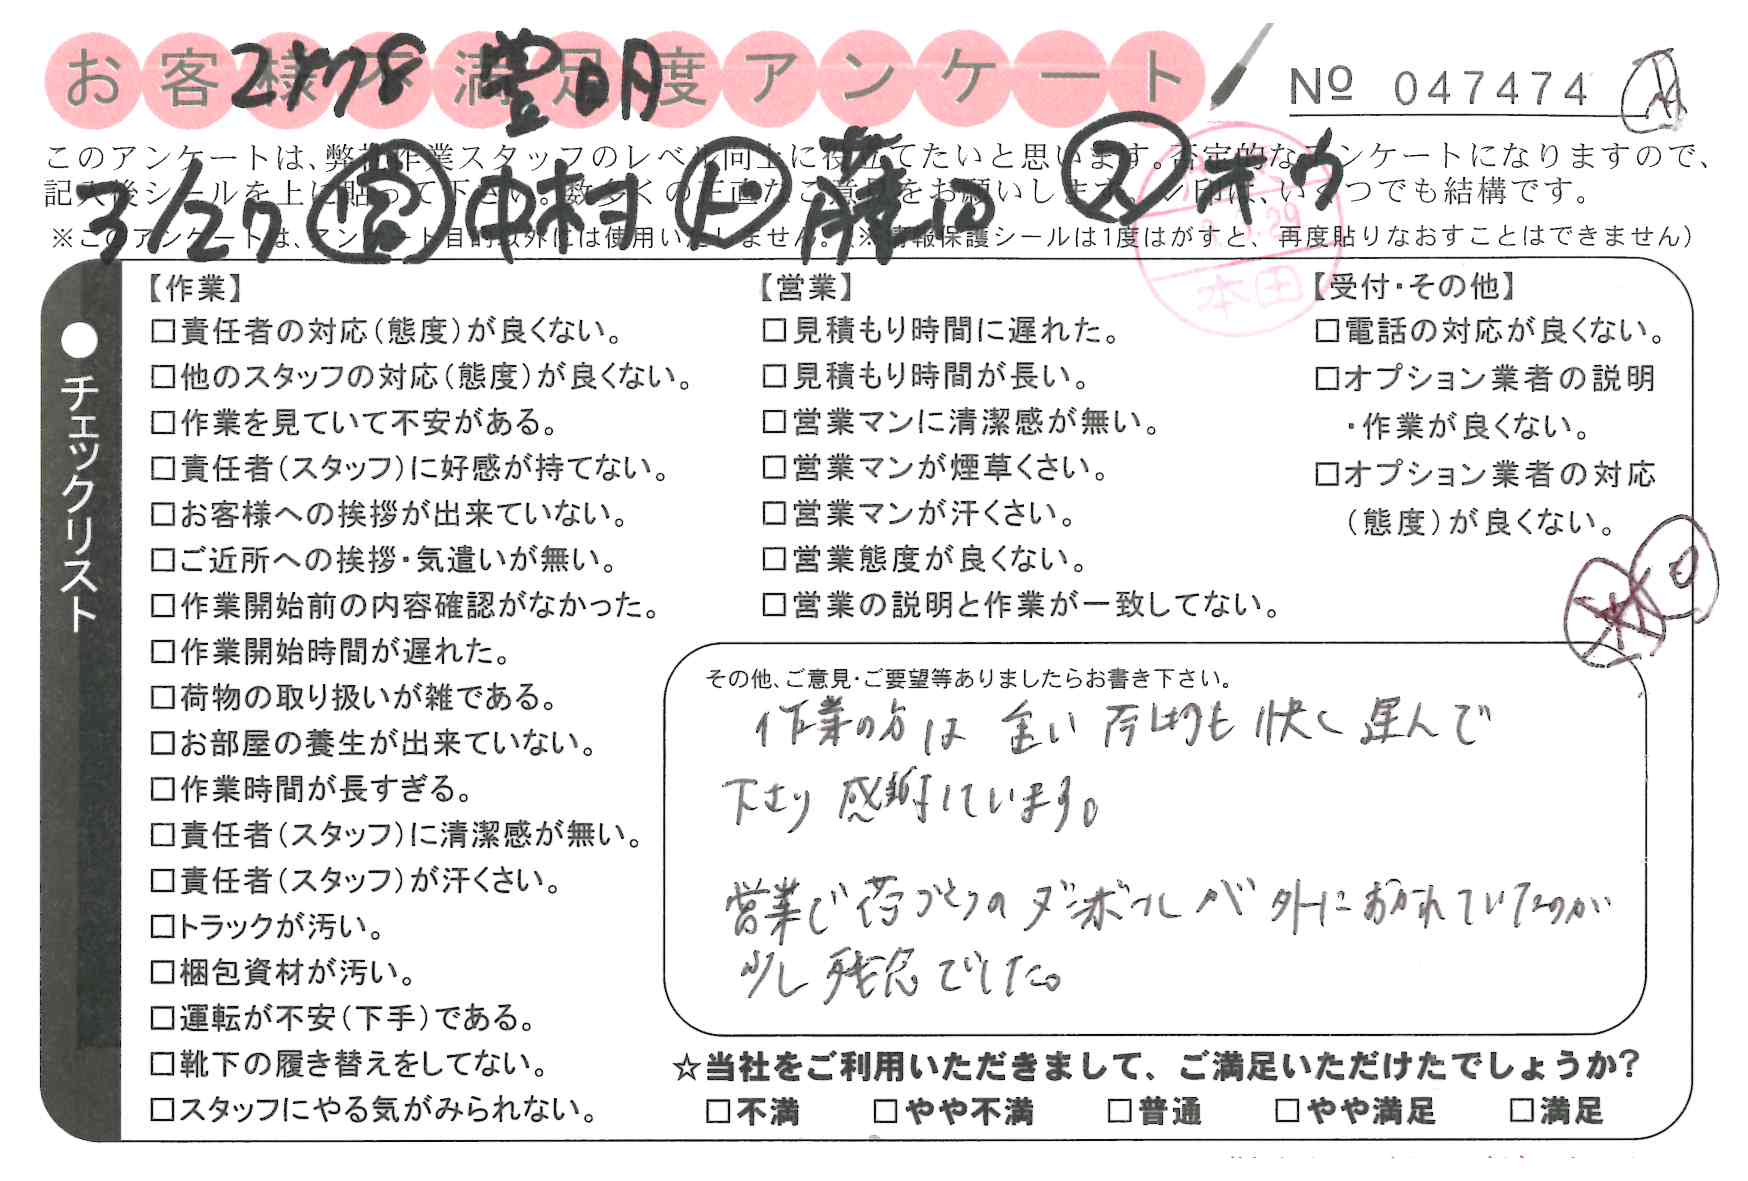 お客様不満足度アンケート
2478 豊明
No 047474
このアンケートは、弊社作業スタッフのレベル向上に役立てたいと思います。否定的なアンケートになりますので、
記入後シールを上に貼って下さい。数多くの正直なご意見をお願いします。レ印は、いくつでも結構です。
3/27 営 中村 ト 藤田 ス ホウ
※このアンケートは、アンケート目的以外には使用いたしません。（※情報保護シールは1度はがすと、再度貼りなおすことはできません）
29
本田
●チェックリスト
【作業】
□責任者の対応（態度）が良くない。
□他のスタッフの対応（態度）が良くない。
□作業を見ていて不安がある。
□責任者（スタッフ）に好感が持てない。
□お客様への挨拶が出来ていない。
□ご近所への挨拶・気遣いが無い。
□作業開始前の内容確認がなかった。
□作業開始時間が遅れた。
□荷物の取り扱いが雑である。
□お部屋の養生が出来ていない。
□作業時間が長すぎる。
□責任者（スタッフ）に清潔感が無い。
□責任者（スタッフ）が汗くさい。
□トラックが汚い。
□梱包資材が汚い。
□運転が不安（下手）である。
□靴下の履き替えをしてない。
□スタッフにやる気がみられない。
【営業】
□見積もり時間に遅れた。
□見積もり時間が長い。
□営業マンに清潔感が無い。
□営業マンが煙草くさい。
□営業マンが汗くさい。
□営業態度が良くない。
□営業の説明と作業が一致してない。
【受付・その他】
□電話の対応が良くない。
□オプション業者の説明
・作業が良くない。
□オプション業者の対応
（態度）が良くない。
その他、ご意見・ご要望等ありましたらお書き下さい。
作業の方は重い荷物も快く運んで
下さり感謝しています。
営業で荷づくりのダンボールが外におかれていたのが
少し残念でした。
☆当社をご利用いただきまして、ご満足いただけたでしょうか？
□不満 □やや不満 □普通 □やや満足 □満足